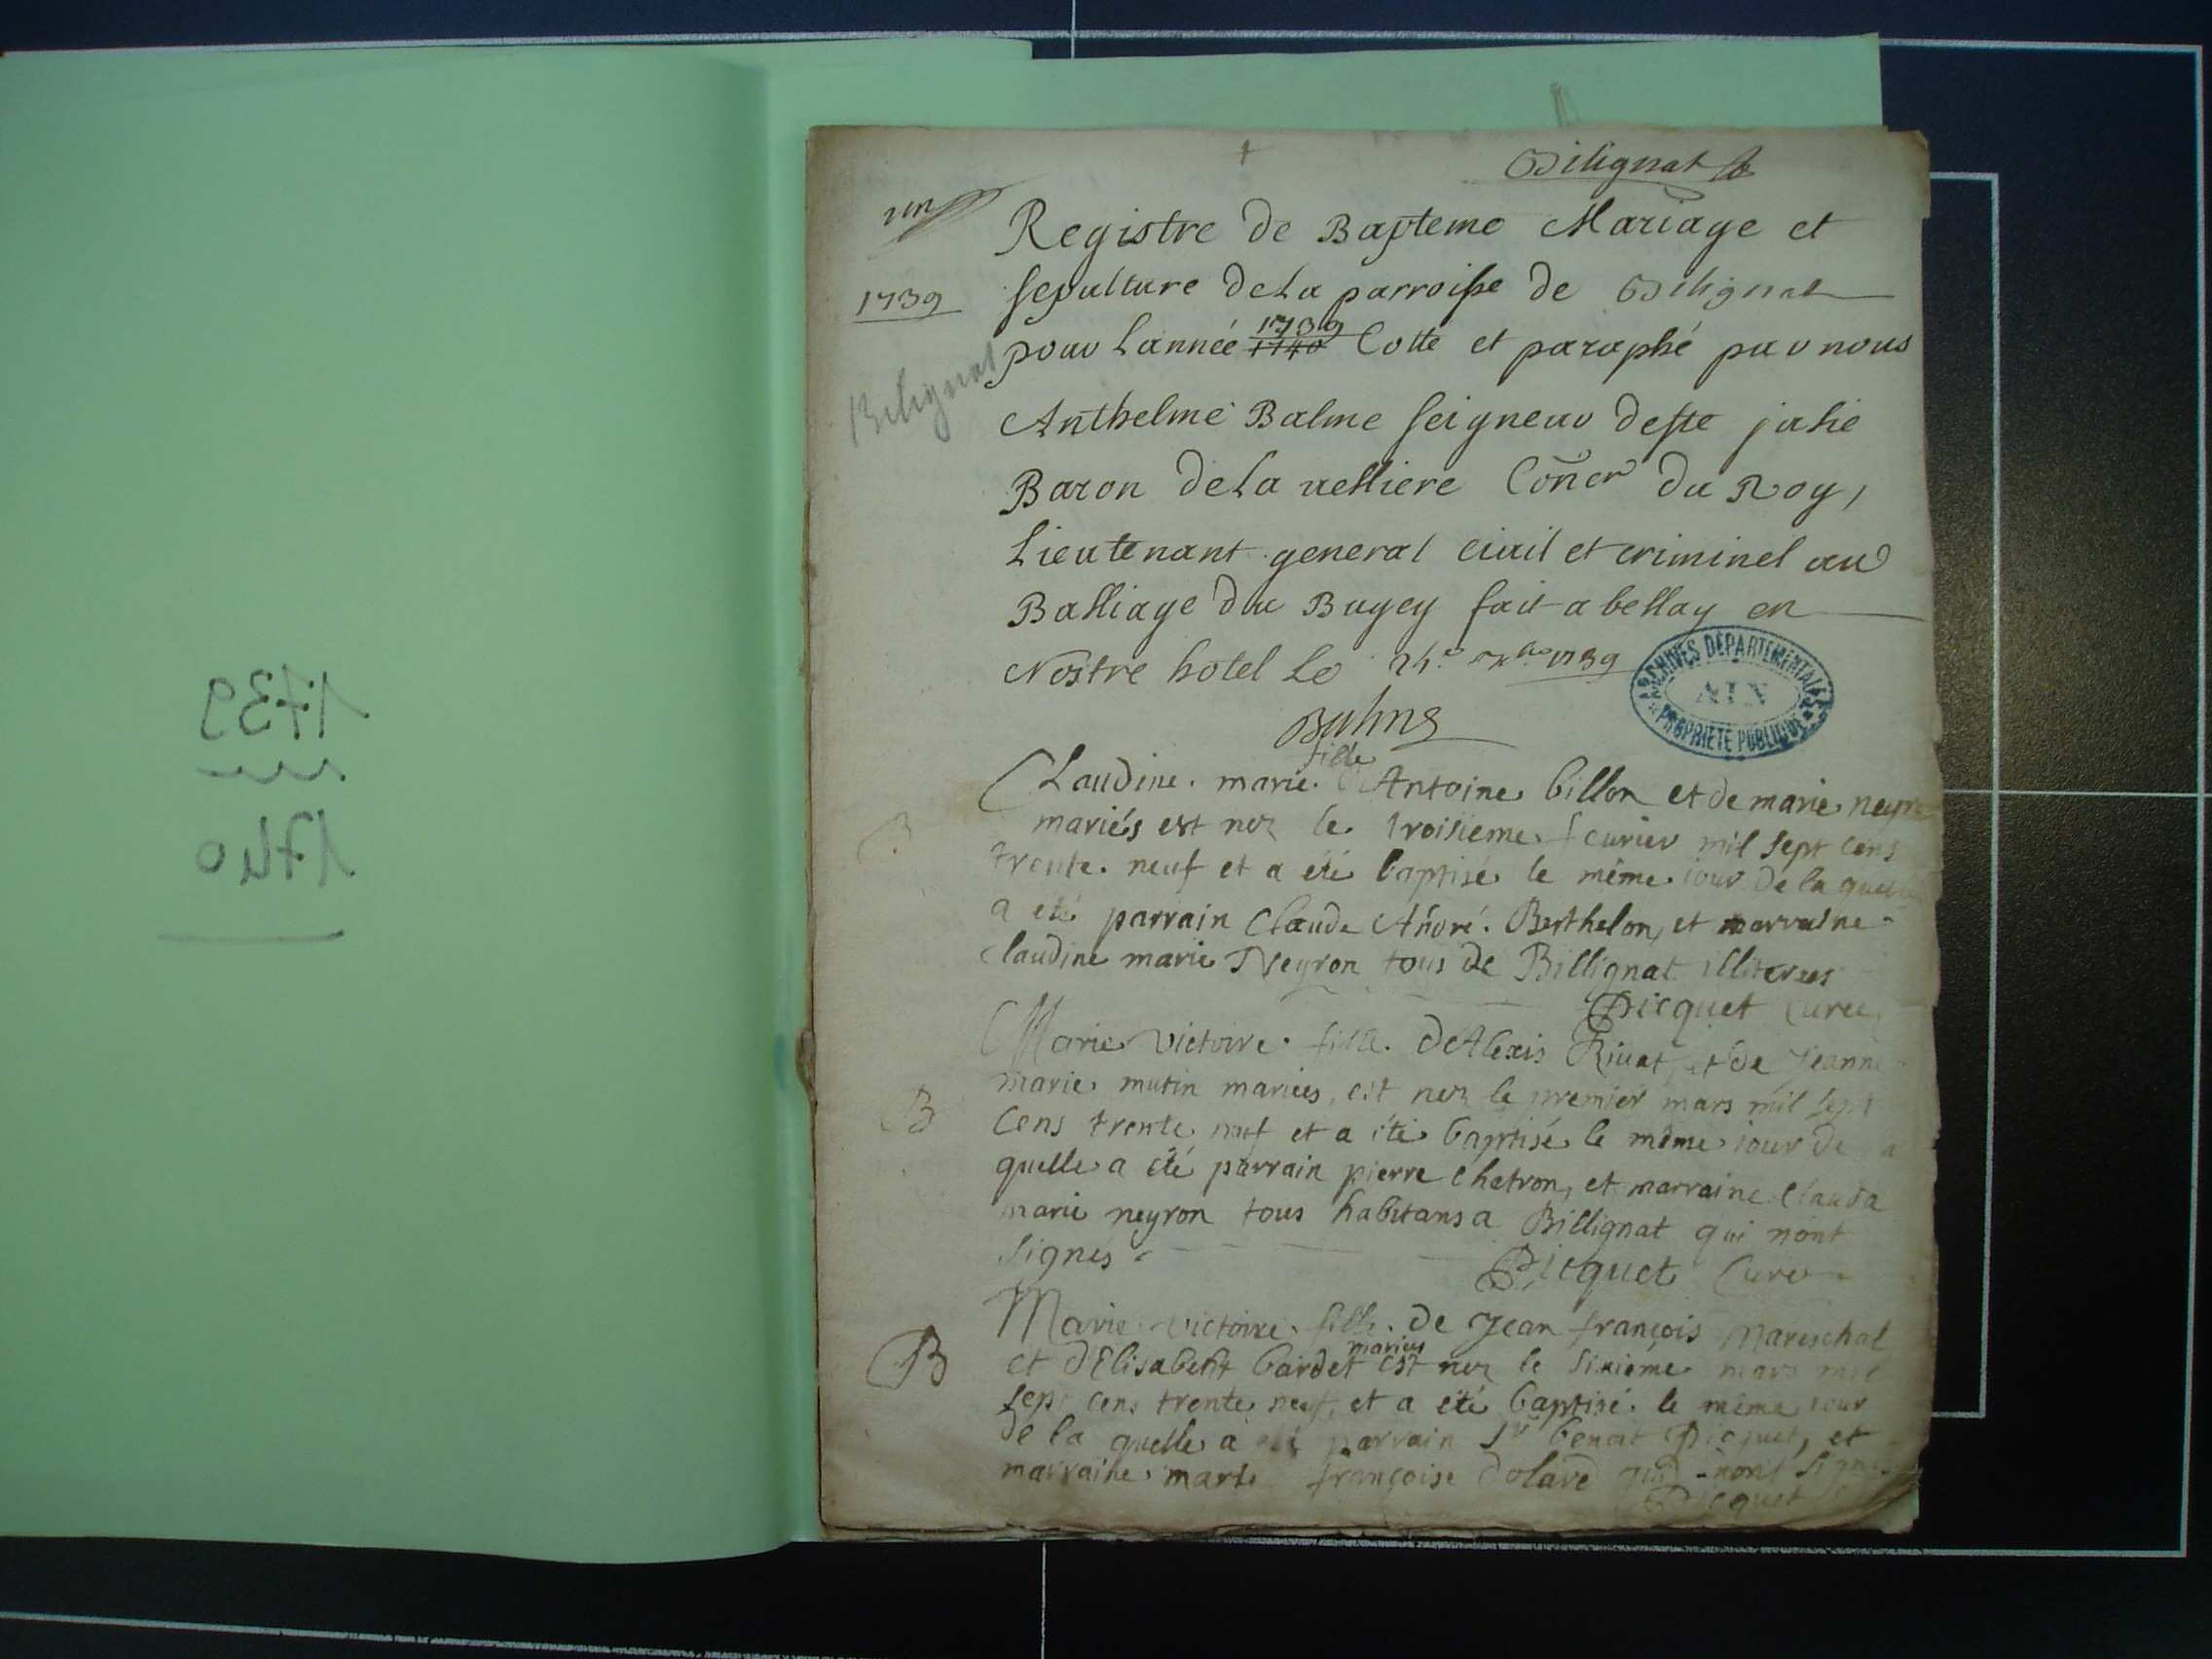 Bilignat
un
Registre de Bapteme Mariage et
1739
sepulture de La parroisse de Bilignat
pour Lannée 1740 1739 Cotte et paraphé par nous
Bilignat
Anthelme Balme seigneur de ste julie
Baron de La velliere Coner du Roy,
Lieutenant general civil et criminel au
Balliage du Bugey fait a bellay en
Nostre hotel Le 24e 1739
ARCHIVES DÉPARTEMENTALES
AIN
PROPRIÉTÉ PUBLIQUE
Balme
Claudine. marie. fille d'Antoine billon et de marie neyron
mariés est nez le troisieme fevrier mil sept cens
B
trente. neuf et a été baptisé le même iour de la quelle
a eté parrain Claude André. Berthelon, et marraine
claudine marie Neyron tous de Billignat illiterés
Picquet Curé
Marie victoire. fille. d'Alexis Rivat, et de Jeanne
marie mutin mariés, est nez le premier mars mil sept
B
cens trente neuf et a été baptisé le même iour de la
quelle a été parrain pierre Chatron, et marraine Clauda
marie neyron tous habitans a Billignat qui nont
signés
Picquet Curé
Marie victoire. fille. de Jean françois Mareschal
B
et d'Elisabeth bardet mariés est nez le sixième mars mil
sept cens trente neuf, et a été baptisé. le même iour
de la quelle a été parrain sr benoit Picquet, et
marraine marie françoise Dolard qui nont signé
Picquet
1739
1740